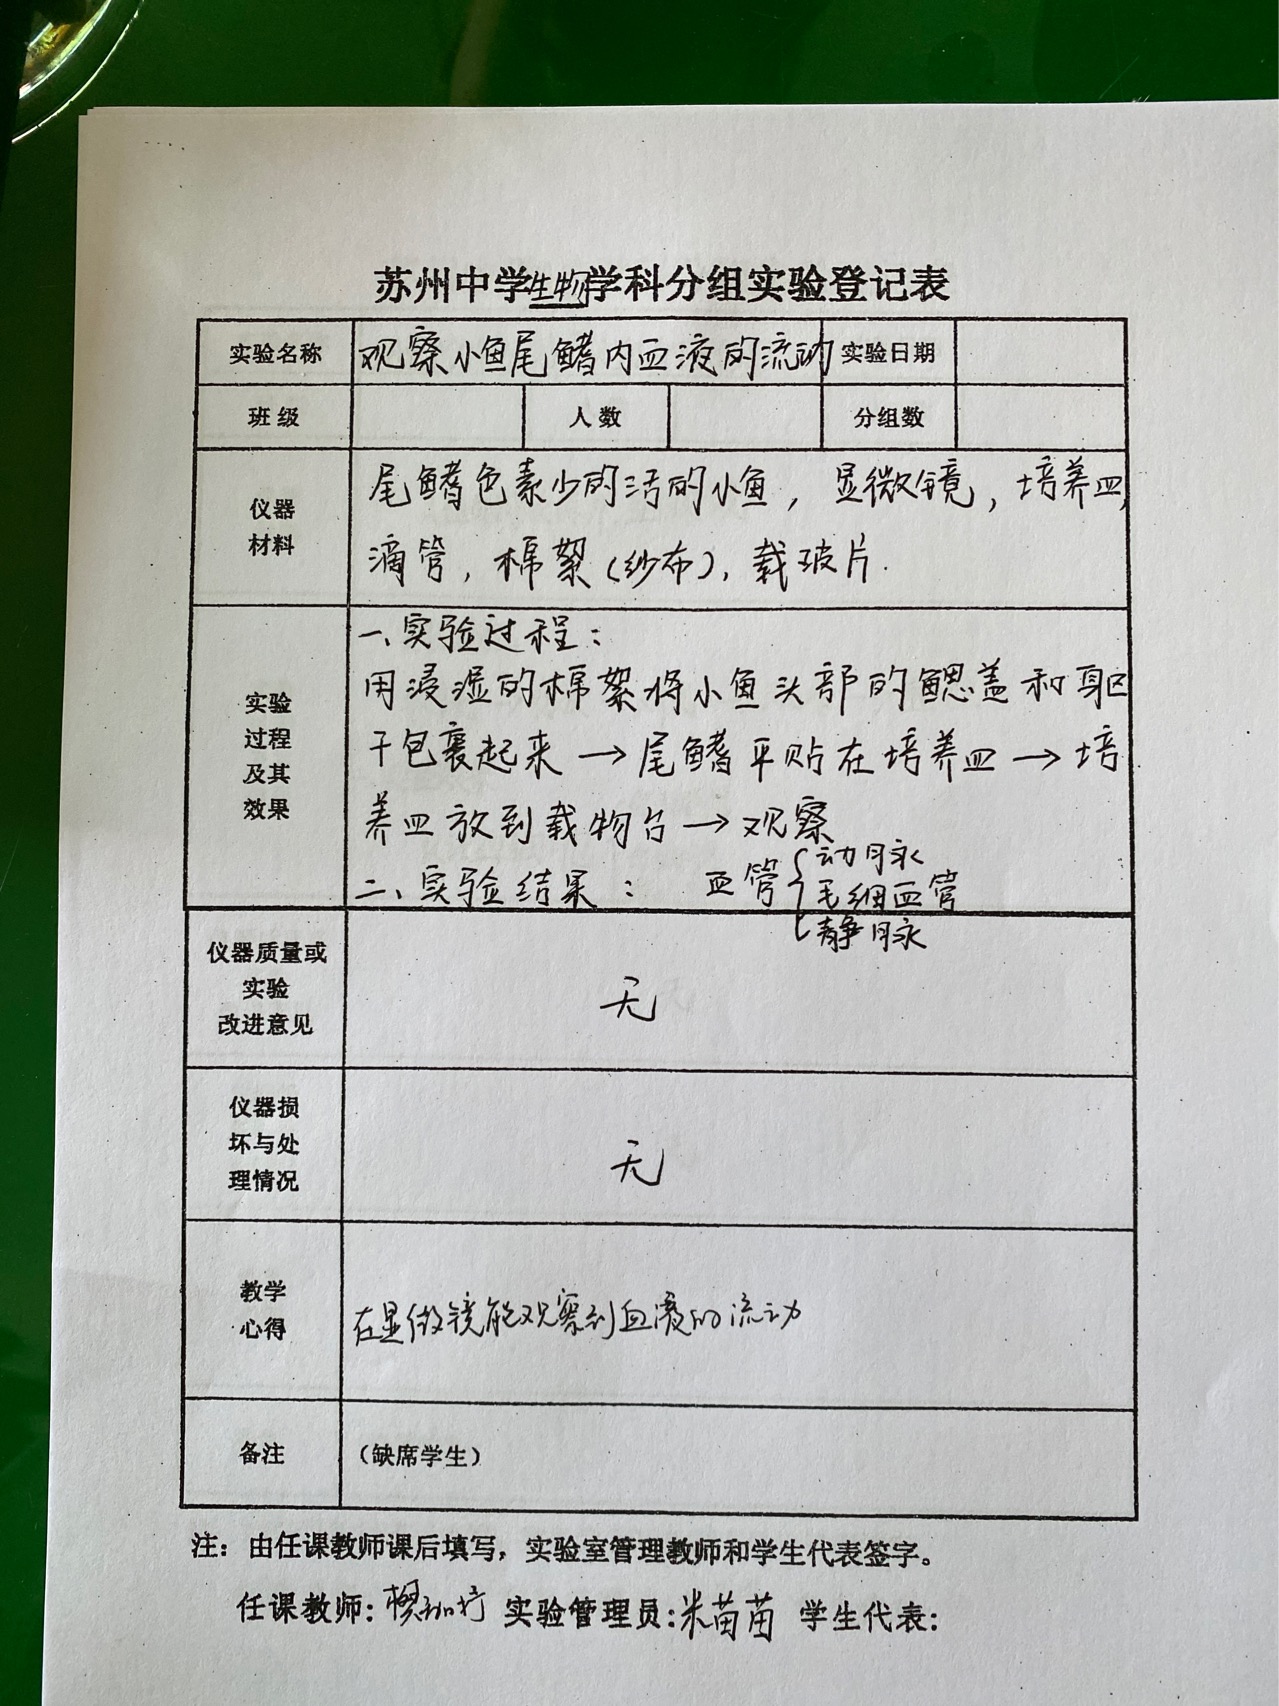 苏州中学生物学科分组实验登记表
实验名称 观察小鱼尾鳍内血液的流动 实验日期
班级 人数 分组数
仪器
材料
尾鳍色素少的活的小鱼，显微镜，培养皿，
滴管，棉絮（纱布），载玻片.
实验
过程
及其
效果
一、实验过程：
用浸湿的棉絮将小鱼头部的鳃盖和躯
干包裹起来→尾鳍平贴在培养皿→培
养皿放到载物台→观察
二、实验结果： 血管 动脉
毛细血管
静脉
仪器质量或
实验
改进意见
无
仪器损
坏与处
理情况
无
教学
心得
在显微镜能观察到血液的流动
备注 （缺席学生）
注：由任课教师课后填写，实验室管理教师和学生代表签字。
任课教师： 实验管理员：米苗苗 学生代表：